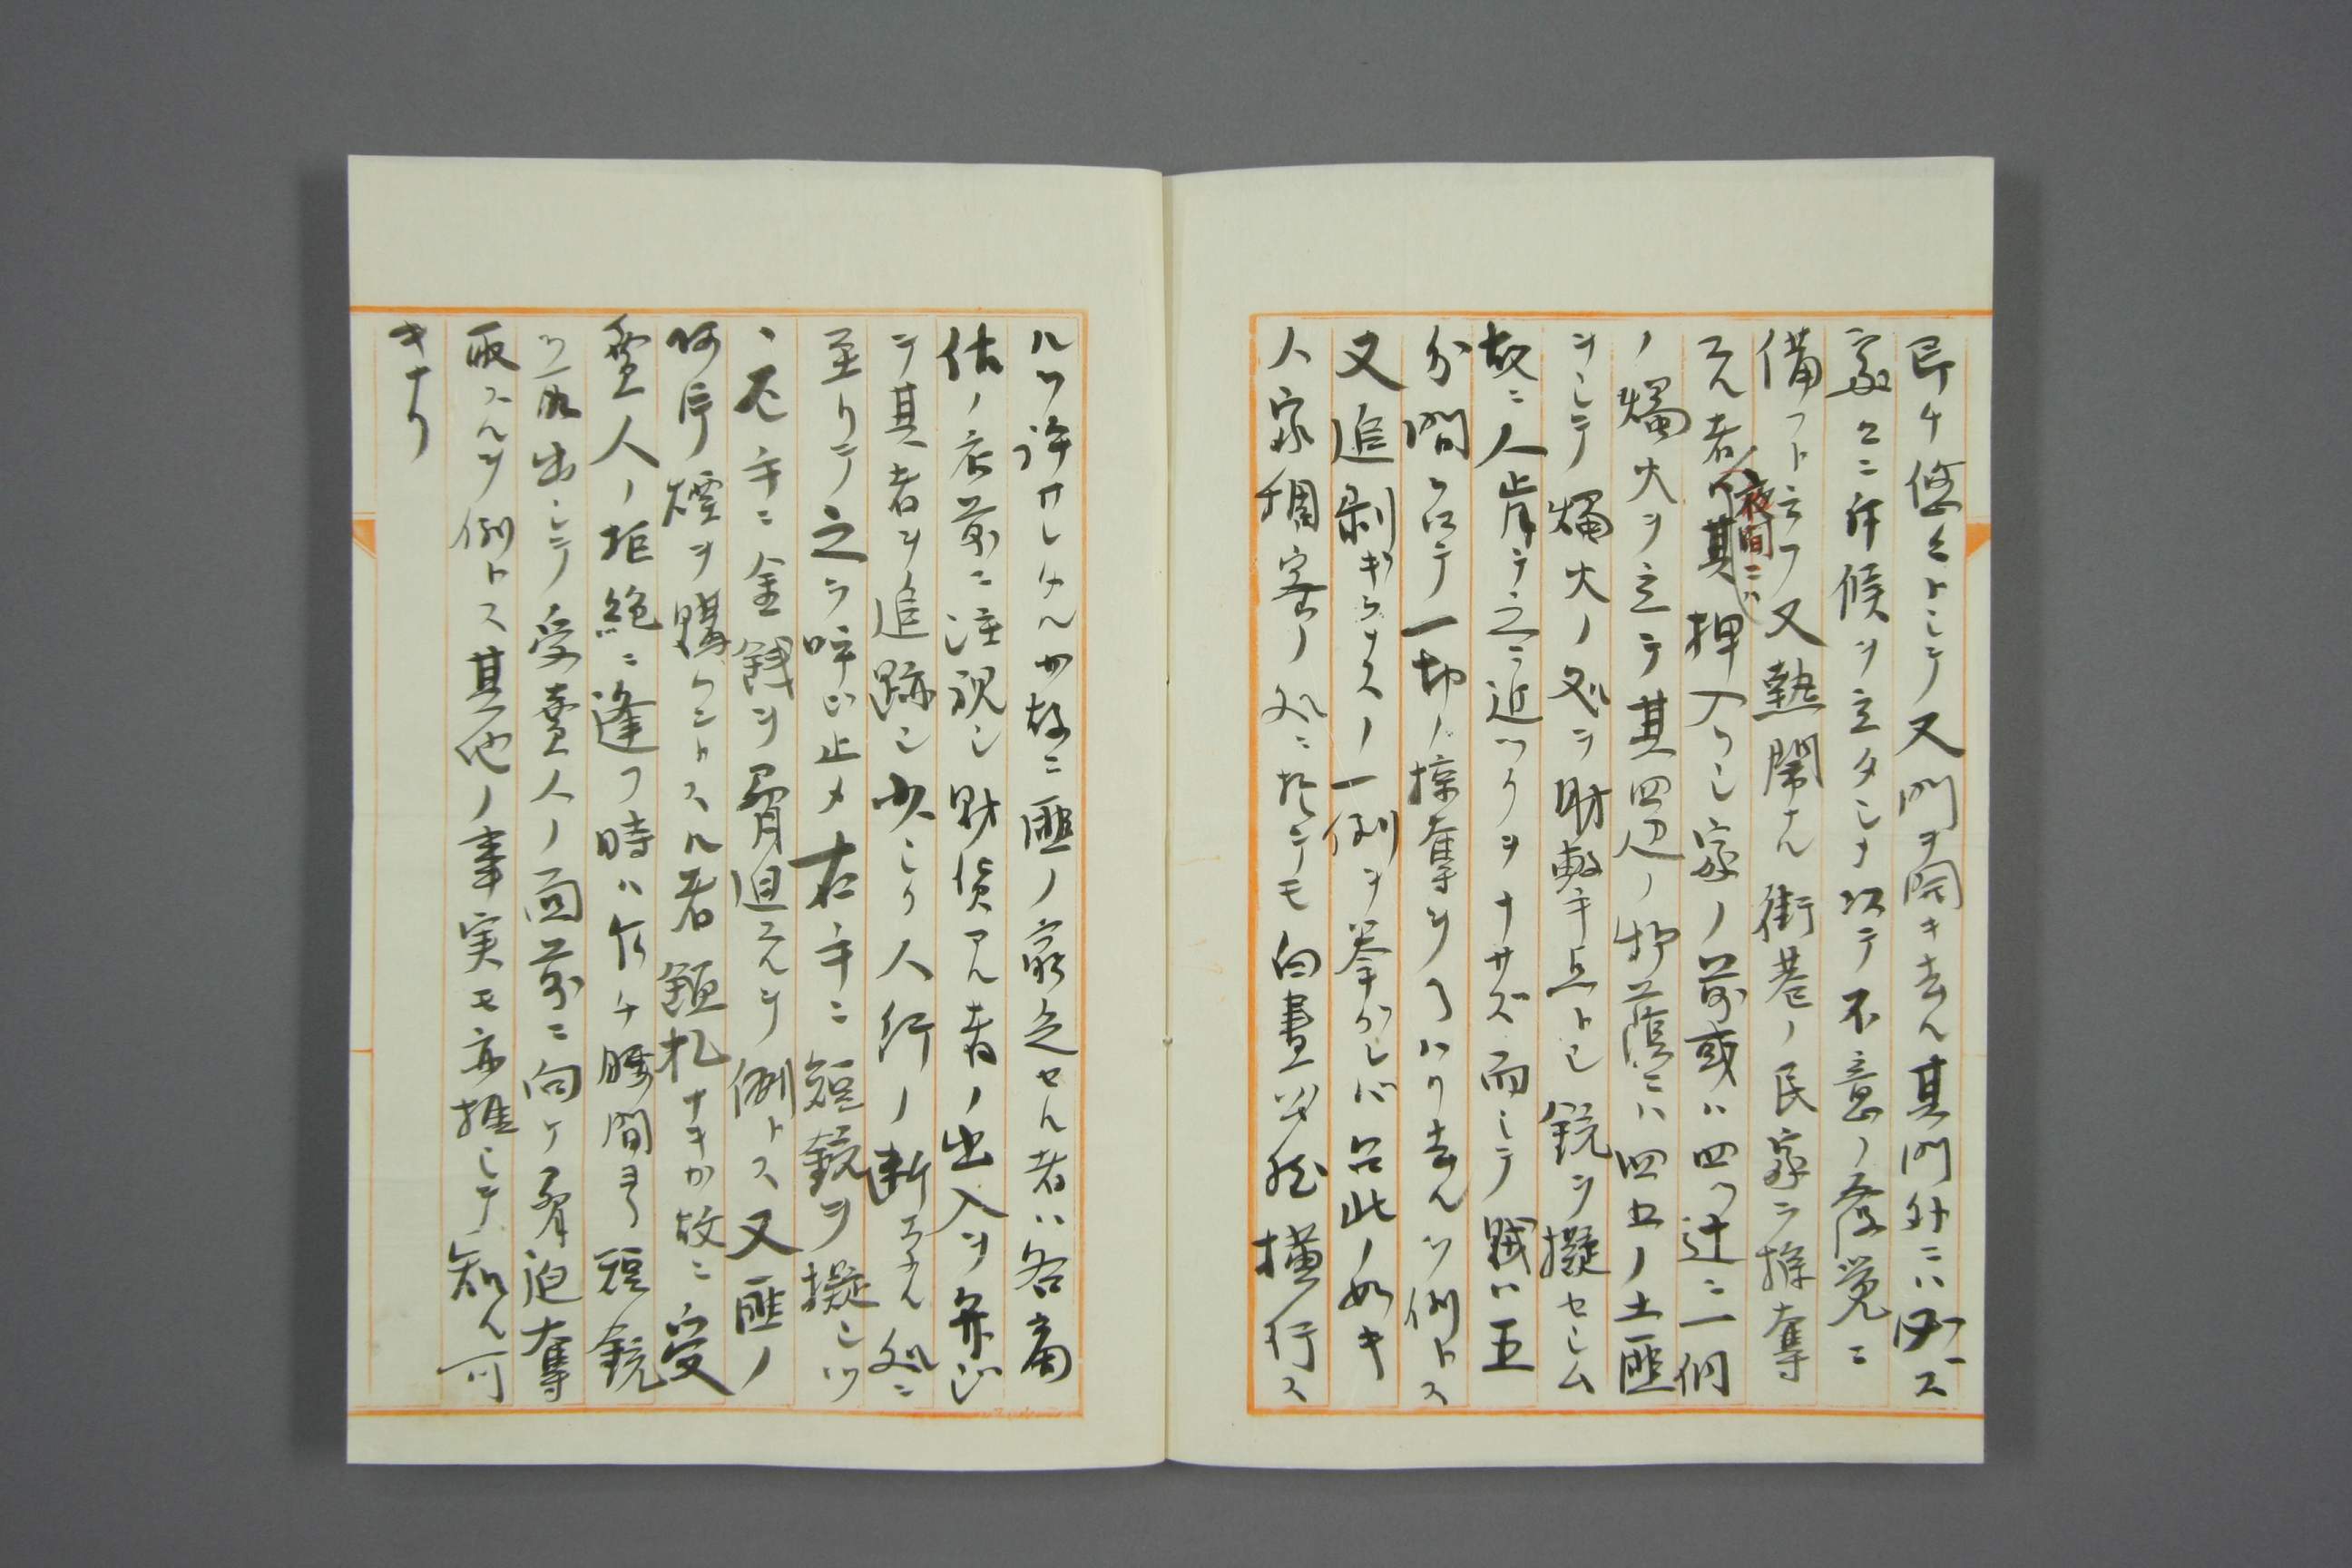 即チ悠々トシテ又門ヲ開キ去ル其門外ニハ必ス
家々ニ斥候ヲ立タシメ以テ不意ノ發覚ニ
備フト云フ又熱閙ナル街巷ノ民家ヲ掠奪
スル者ハ夜間ニハ其押入リシ家ノ前或ハ四ツ辻ニ一個
ノ燭火ヲ立テ其四辺ノ物蔭ニハ四五ノ土匪
ヲシテ燭火ノ処ヲ射撃点トシ銃ヲ擬セシム
故ニ人肯テ之ニ近ツクヲナサズ而シテ賊ハ五
分間位ニテ一切ノ掠奪ヲ了ハリ去ルヲ例トス
又追剥ギヲナスノ一例ヲ挙グレバ此ノ如キ
人家稠密ノ処ニ於テモ白昼公然横行ス
ルヲ許サレタルガ故ニ匪ノ窮乏セル者ハ各商
估ノ店前ニ注視シ財貨アル者ノ出入ヲ弁ジ
テ其者ヲ追跡シ少シク人行ノ断エタル処ニ
至リテ之ヲ呼ビ止メ右手ニ短銃ヲ擬シツ
ヽ左手ニ金錢ヲ脅迫スルヲ例トス又匪ノ
阿片煙ヲ購ハントスル者鑑札ナキカ故ニ受
賣人ノ拒絶ニ逢フ時ハ乃チ腰間ヨリ短銃
ヲ取出シテ受賣人ノ面前ニ向ケ脅迫奪
取スルヲ例トス其他ノ事実モ亦推シテ知ル可
キナリ